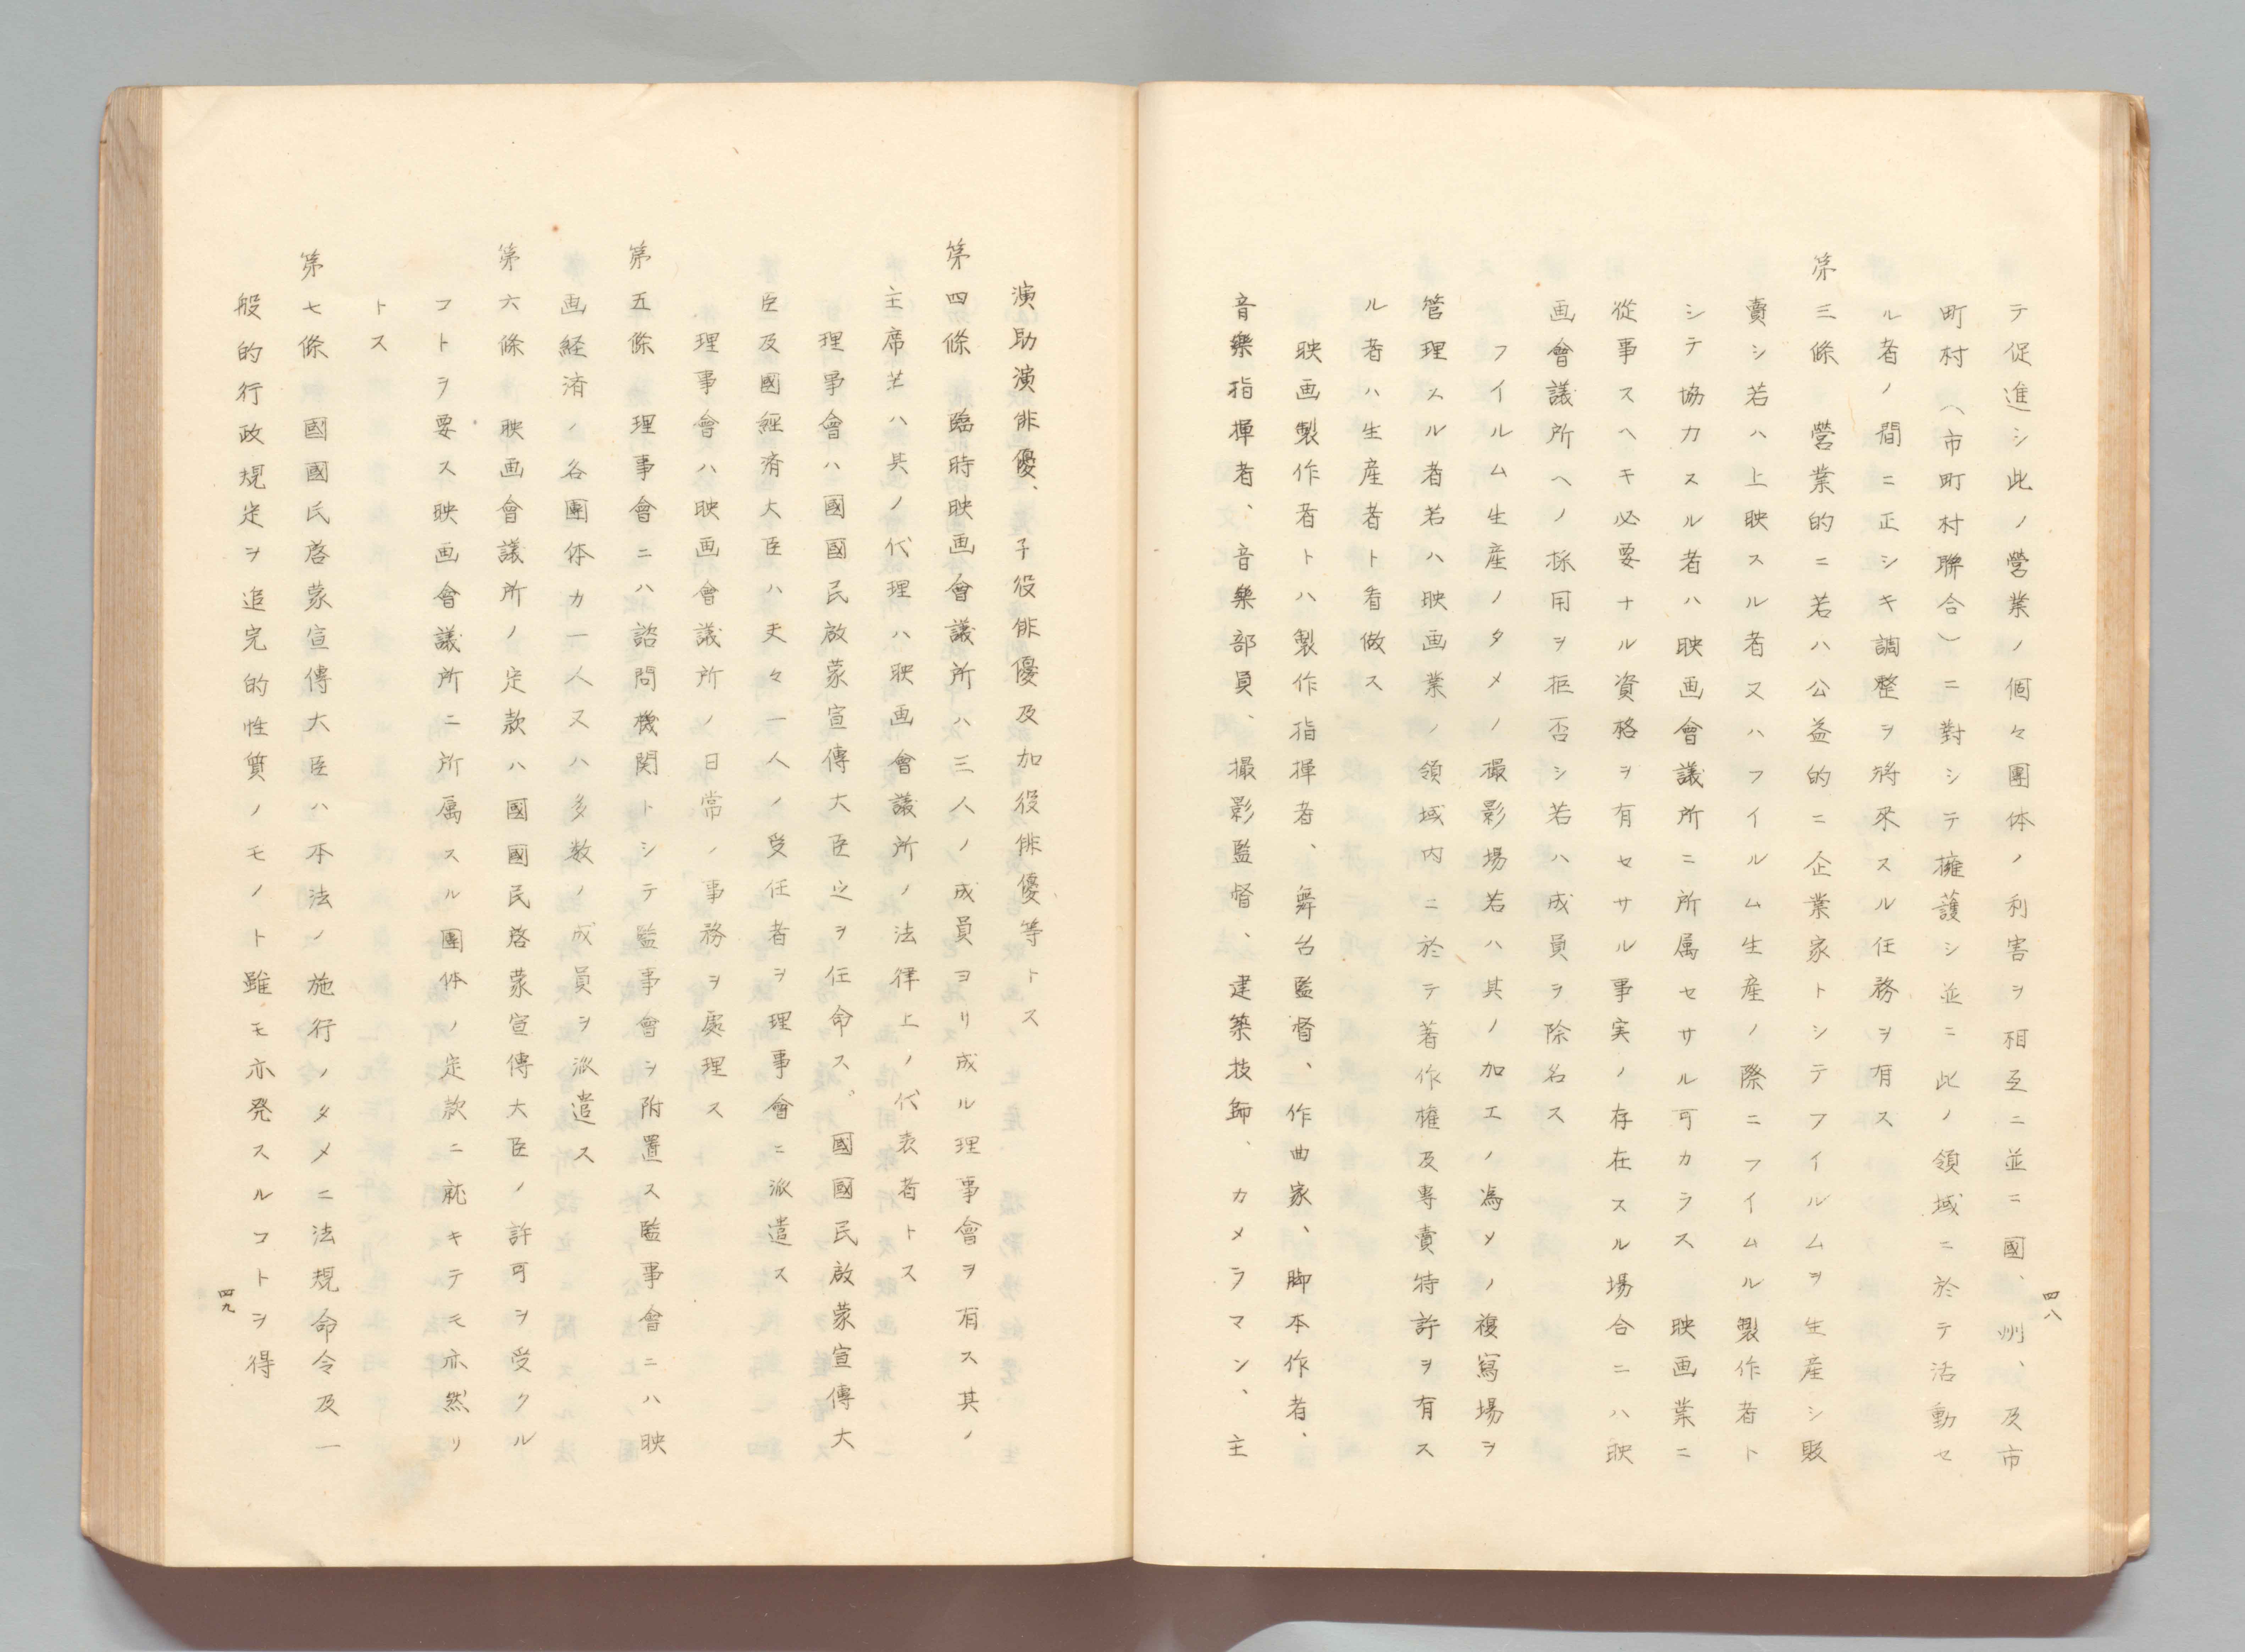 テ促進シ此ノ營業ノ個々團体ノ利害ヲ相互ニ並ニ國、州、及市
町村(市町村聯合)ニ對シテ擁護シ並ニ此ノ領域ニ於テ活動セ
ル者ノ間ニ正シキ調整ヲ將來スル任務ヲ有ス
第三條 營業的ニ若ハ公益的ニ企業家トシテフイルムヲ生産シ販
賣シ若ハ上映スル者又ハフイルム生産ノ際ニフイムル製作者ト
シテ協力スル者ハ映画會議所ニ所属セサル可カラス 映画業ニ
從事スヘキ必要ナル資格ヲ有セサル事実ノ存在スル場合ニハ映
画會議所ヘノ採用ヲ拒否シ若ハ成員ヲ除名ス
フイルム生産ノタメノ撮影場若ハ其ノ加工ノ為メノ複寫場ヲ
管理スル者若ハ映画業ノ領域内ニ於テ著作権及專賣特許ヲ有ス
ル者ハ生産者ト看做ス
映画製作者トハ製作指揮者、舞台監督、作曲家、脚本作者、
音樂指揮者、音樂部員、撮影監督、建築技師、カメラマン、主
四八
演助演俳優、子役俳優及加役俳優等トス
第四條 臨時映画會議所ハ三人ノ成員ヨリ成ル理事會ヲ有ス其ノ
主席若ハ其ノ代理ハ映画會議所ノ法律上ノ代表者トス
理事會ハ國國民啟蒙宣傳大臣之ヲ任命ス。國國民啟蒙宣傳大
臣及國經済大臣ハ夫々一人ノ受任者ヲ理事會ニ派遣ス
理事會ハ映画會議所ノ日常ノ事務ヲ處理ス
第五條 理事會ニハ諮問機関トシテ監事會ヲ附置ス監事會ニハ映
画経済ノ各團体カ一人又ハ多数ノ成員ヲ派遣ス
第六條 映画會議所ノ定款ハ國國民啓蒙宣傳大臣ノ許可ヲ受クル
コトヲ要ス映画會議所ニ所属スル團体ノ定款ニ就キテモ亦然リ
トス
第七條 國國民啓蒙宣傳大臣ハ本法ノ施行ノタメニ法規命令及一
般的行政規定ヲ追完的性質ノモノト雖モ亦発スルコトヲ得
四九